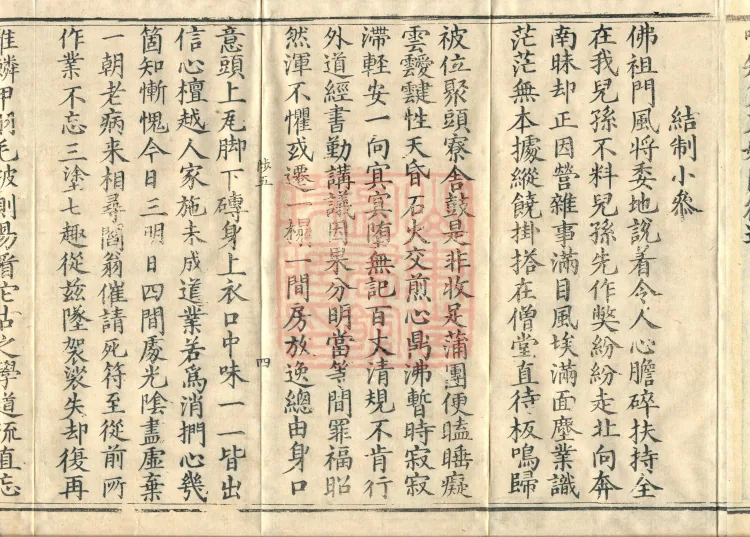 結制小參
佛祖門風將委地說着令人心膽碎扶持全
在我兒孫不料兒孫先作獘紛紛走北向奔
南昧却正因營雜事滿目風埃滿面塵業識
茫茫無本據縱饒掛搭在僧堂直待板鳴歸
被位聚頭寮舍鼓是非收足蒲團便瞌睡癡
雲靉靆性天昏石火交煎心鼎沸暫時寂寂
滯輕安一向冥冥墮無記百丈清規不肯行
外道經書勤講議因果分明當等閒罪福昭
然渾不懼或遷一榻一間房放逸總由身口
陟五
四
意頭上瓦脚下磚身上衣口中味一一皆出
信心檀越人家施未成道業若爲消捫心幾
箇知慚愧今日三明日四閒處光陰盡虛棄
一朝老病来相尋閻翁催請死符至從前所
作業不忘三塗七趣從兹墜袈裟失却復再